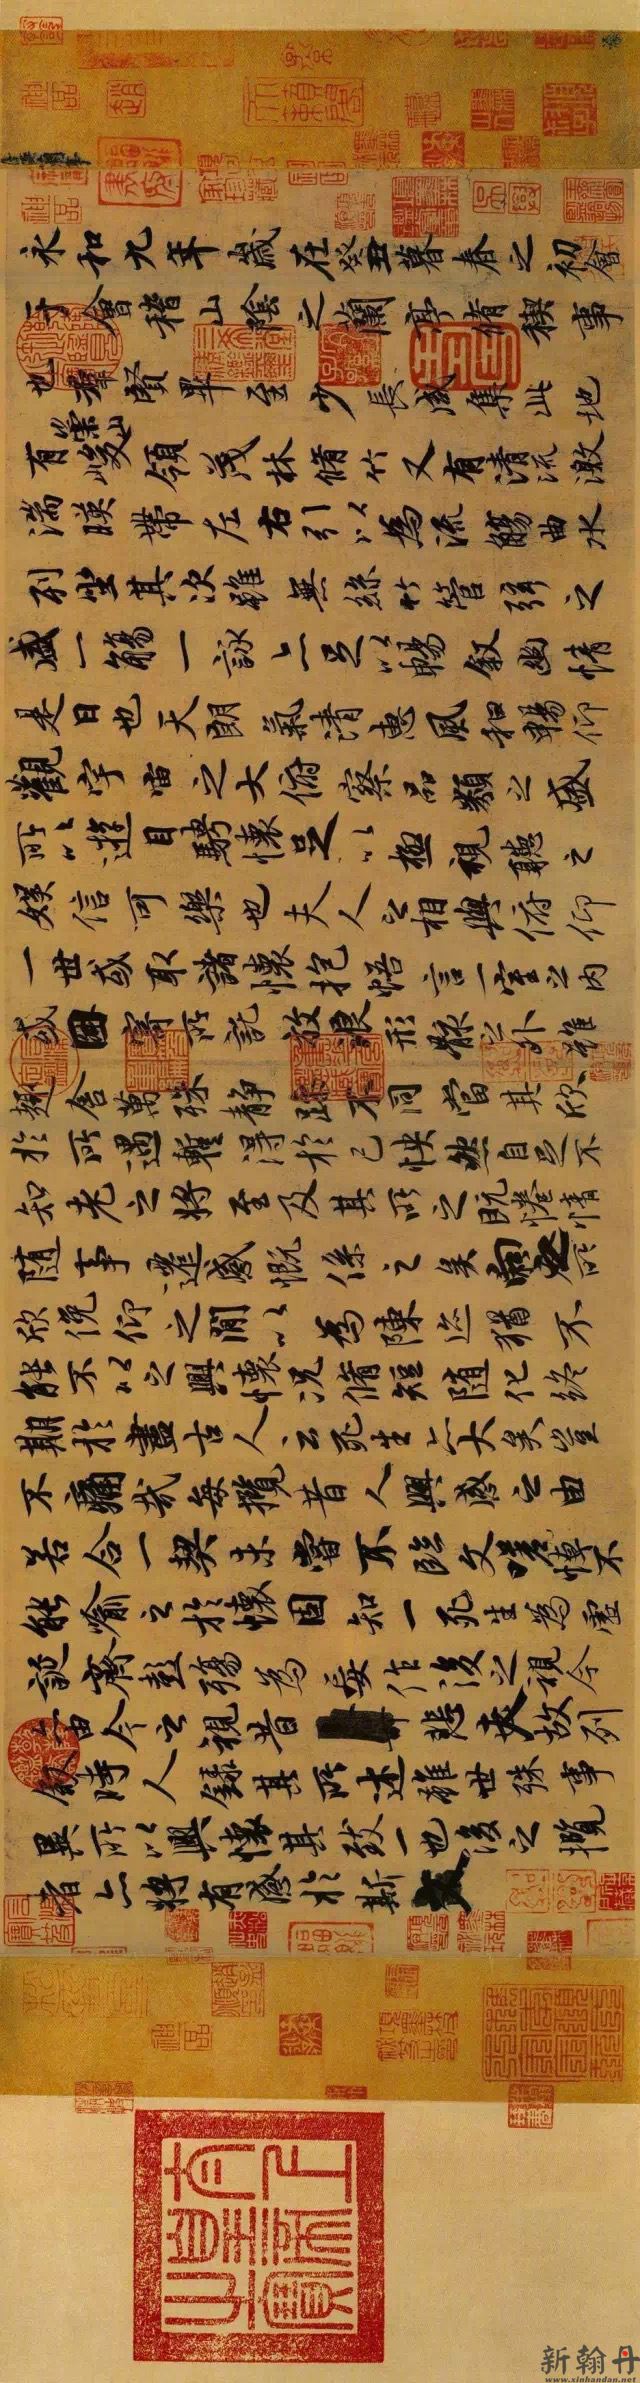 永和九年歲在癸丑暮春之初會
于會稽山陰之蘭亭脩稧事
也羣賢畢至少長咸集此地
有崇山峻領茂林脩竹又有清流激
湍暎帶左右引以為流觴曲水
列坐其次雖無絲竹管弦之
盛一觴一詠亦足以暢叙幽情
是日也天朗氣清惠風和暢仰
觀宇宙之大俯察品類之盛
所以遊目騁懷足以極視聽之
娛信可樂也夫人之相與俯仰
一世或取諸懷抱悟言一室之內
或因寄所託放浪形骸之外雖
趣舍萬殊靜躁不同當其欣
於所遇蹔得於己怏然自足不
知老之將至及其所之既惓情
隨事遷感慨係之矣向之所
欣俛仰之閒以為陳迹猶不
能不以之興懷況脩短隨化終
期於盡古人云死生亦大矣豈
不痛哉每攬昔人興感之由
若合一契未嘗不臨文嗟悼不
能喻之於懷固知一死生為虛
誕齊彭殤為妄作後之視今
亦由今之視昔悲夫故列
叙時人錄其所述雖世殊事
異所以興懷其致一也後之攬
者亦將有感於斯文
新翰丹
www.xinhandan.net